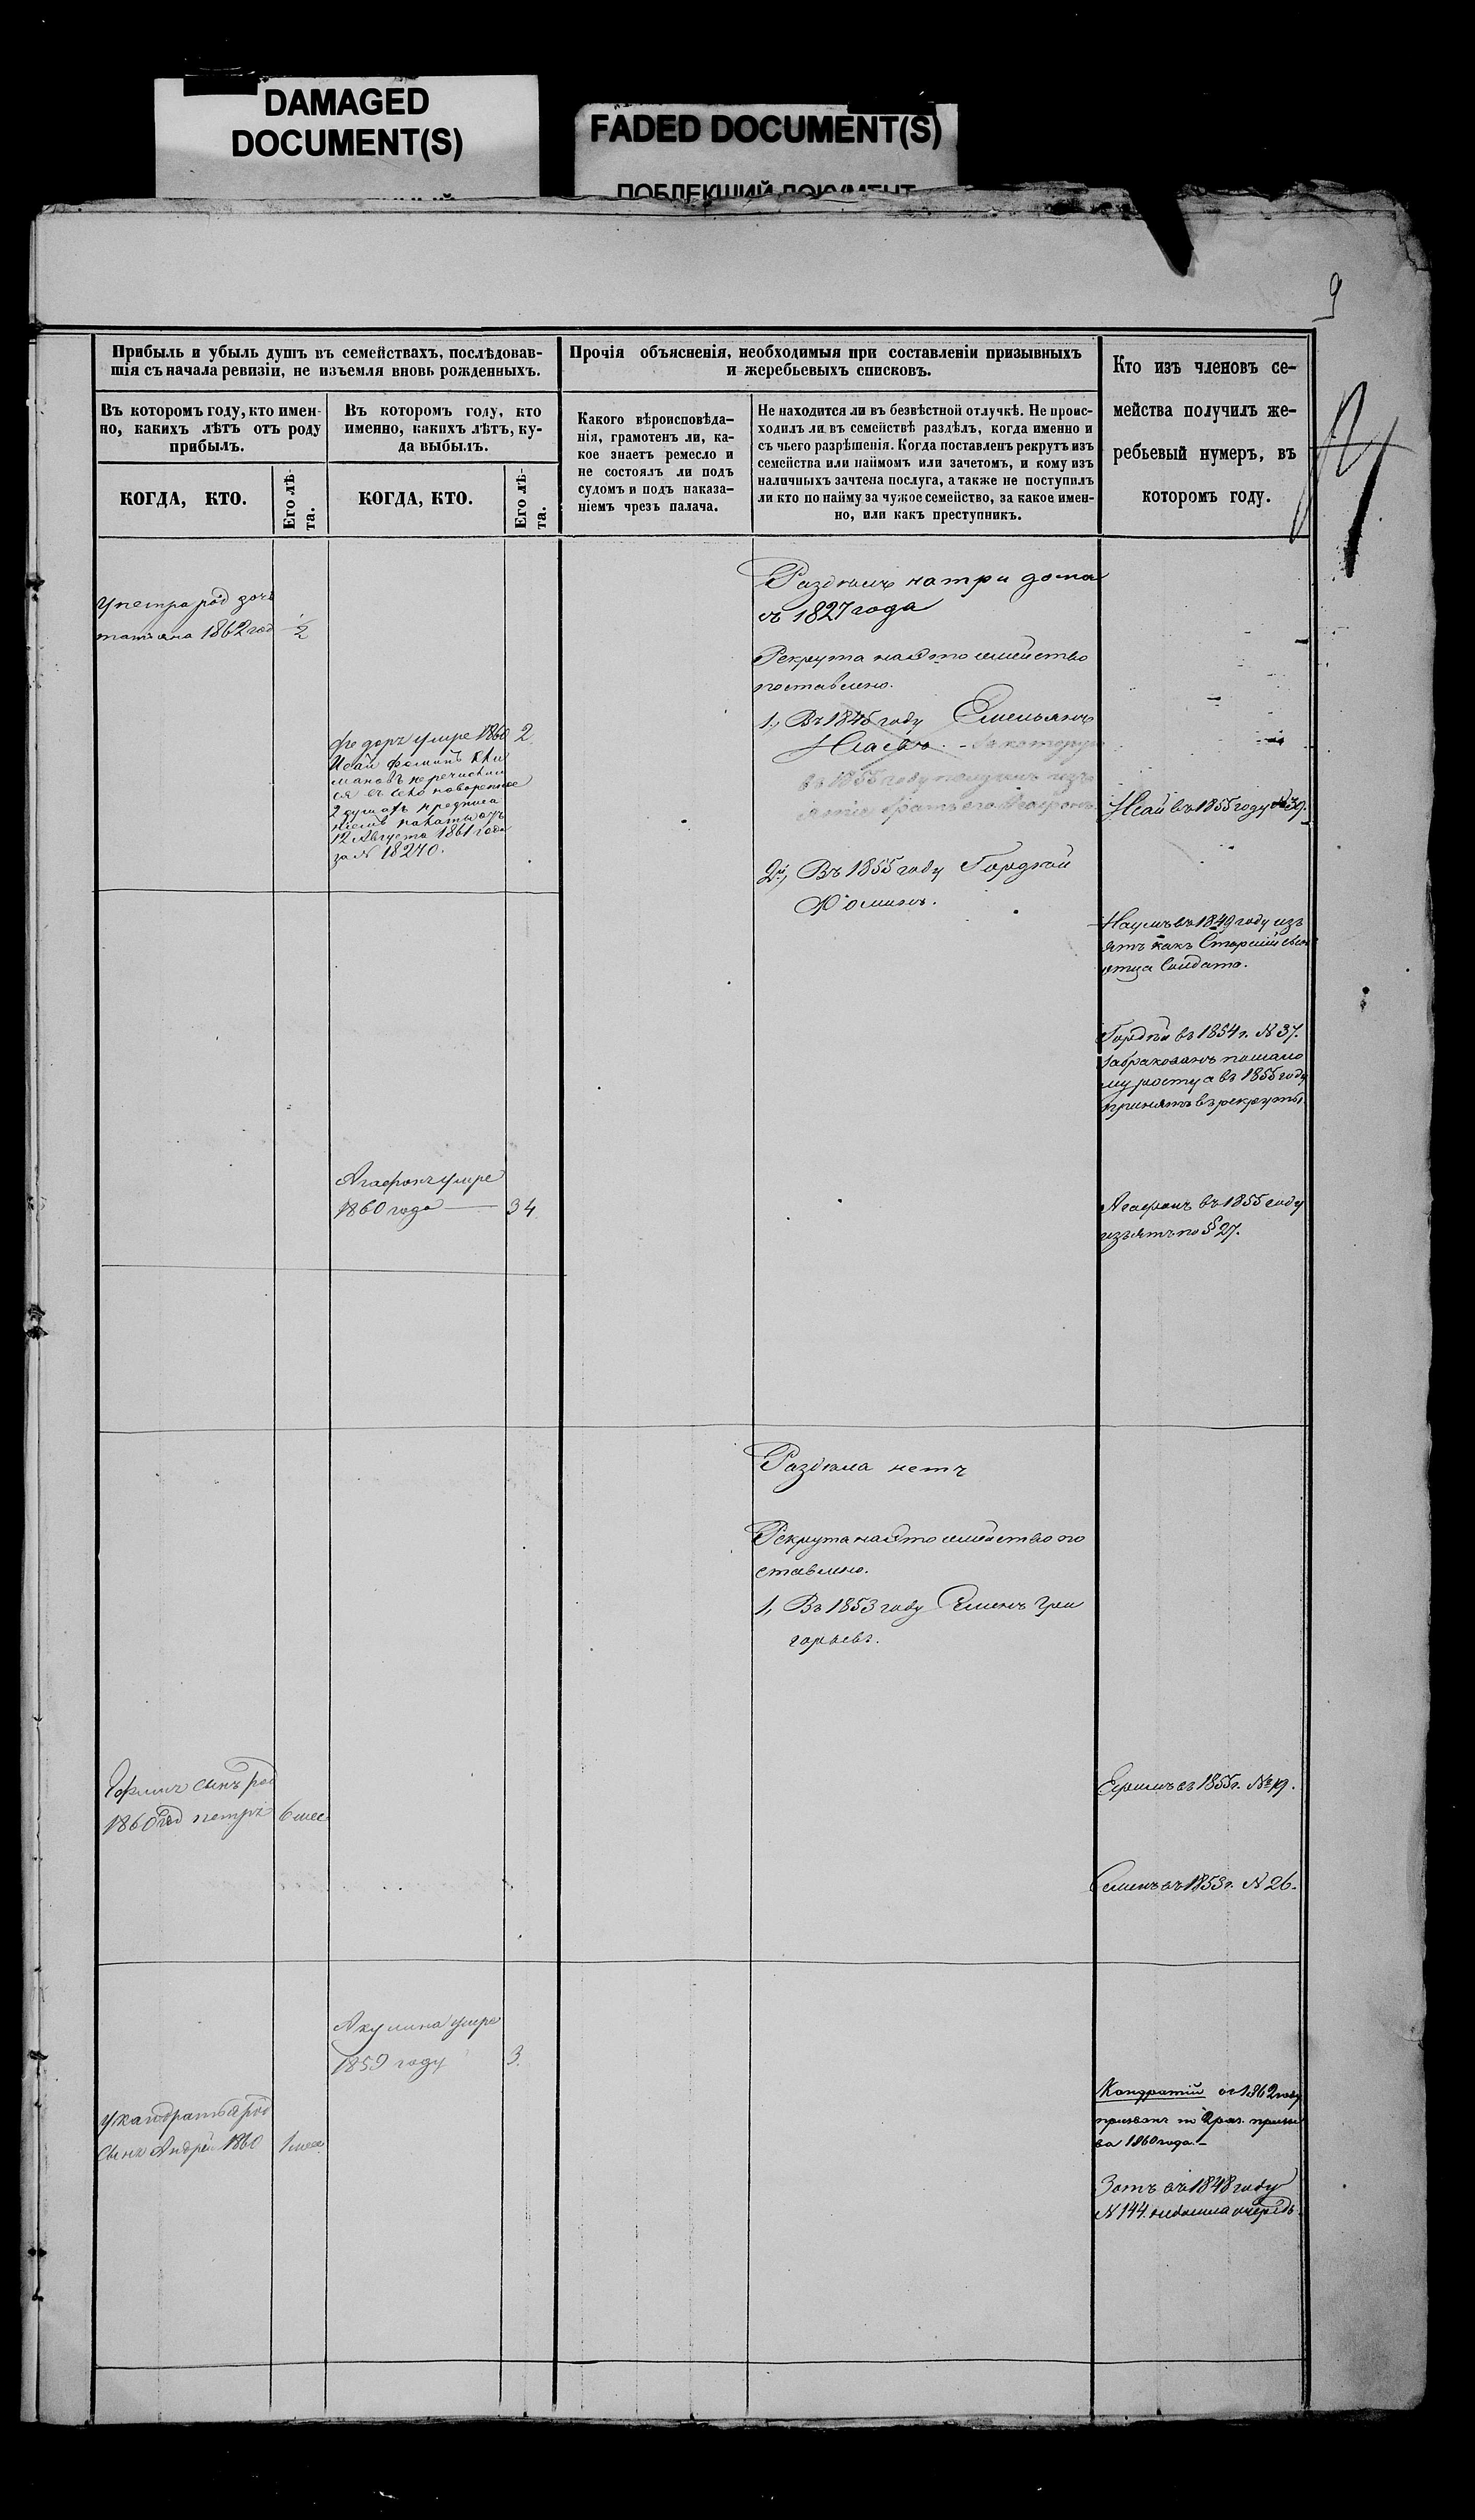 DAMAGED
DOCUMENT(S)
FADED DOCUMENT(S)
ПОБЛЕКШИЙ ДОКУМЕНТ
9
Прибыль и убыль душъ въ семействахъ, послѣдовав-
шія съ начала ревизіи, не изъемля вновь рожденныхъ.
Въ которомъ году, кто имен-
но, какихъ лѣтъ отъ роду
прибылъ.
КОГДА, КТО.
Его лѣ-
та.
Въ которомъ году, кто
именно, какихъ лѣтъ, ку-
да выбылъ.
КОГДА, КТО.
Его лѣ-
та.
Прочія объясненія, необходимыя при составленіи призывныхъ
и жеребьевыхъ списковъ.
Какого вѣроисповѣда-
нія, грамотенъ ли, ка-
кое знаетъ ремесло и
не состоялъ ли подъ
судомъ и подъ наказа-
ніемъ чрезъ палача.
Не находится ли въ безвѣстной отлучкѣ. Не проис-
ходилъ ли въ семействѣ раздѣлъ, когда именно и
съ чьего разрѣшенія. Когда поставленъ рекрутъ изъ
семейства или наймомъ или зачетомъ, и кому изъ
наличныхъ зачтена послуга, а также не поступилъ
ли кто по найму за чужое семейство, за какое имен-
но, или какъ преступникъ.
Кто изъ членовъ се-
мейства получилъ же-
ребьевый нумеръ, въ
которомъ году.
У петра род доч
татяна 1862 год
1/2
Федоръ умре 1860
2
Исай Фоминъ
2 душахъ
12 Августа 1861 года
за № 18270.
Разделъ на три дома
съ 1827 года
Рекрута на это семейство
поставлено.
1, Въ 1845 году Емельянъ
въ 1855 году
братъ его Агафонъ
2, Въ 1855 году Гордѣй
Фоминъ.
Исай въ 1855 году № 39.
Наумъ въ 1849 году изъ
ятъ какъ Старшій сын
отца Солдата.
Гордѣй въ 1854 г. № 37.
Забракованъ помало
му росту а въ 1855 году
принятъ в рекруты.
Агафонъ умре
1860 года
34
Агафонъ въ 1855 году
изъятъ по § 27.
Раздела нетъ
Рекрута на это семейство по
ставлено.
1, Въ 1853 году Семенъ Гри
горьевъ.
сынъ род
1860 год петръ
6 мес
Ефимъ въ 1855 г. № 19.
Семенъ въ 1853 г. № 26.
Акулина умре
1859 году
3.
У кандратья род
Сынъ Андрей 1860
1 мес
Кондратій въ 1862 году
призванъ
ва 1860 года. —
Зотъ въ 1848 году
№ 144. недошла очередь.